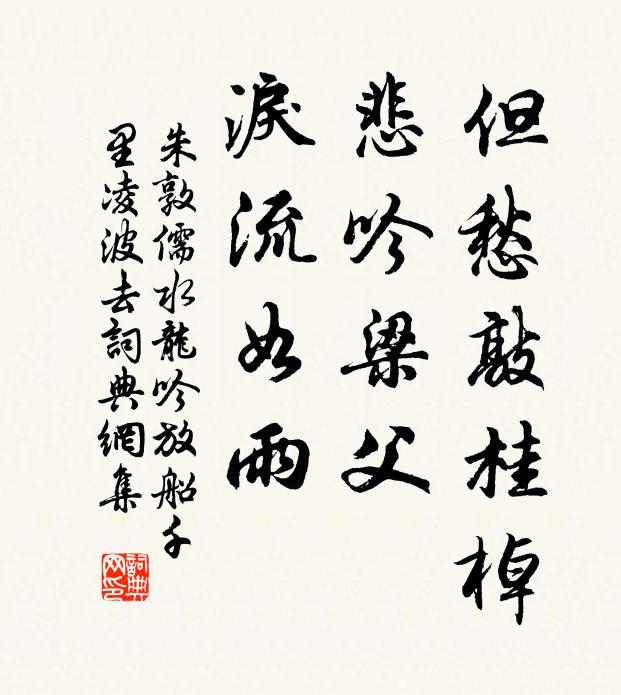 但愁敲桂棹
悲吟梁父
淚流如雨
朱敦儒水龍吟放船千
里凌波去詞典網集
詞典
网印